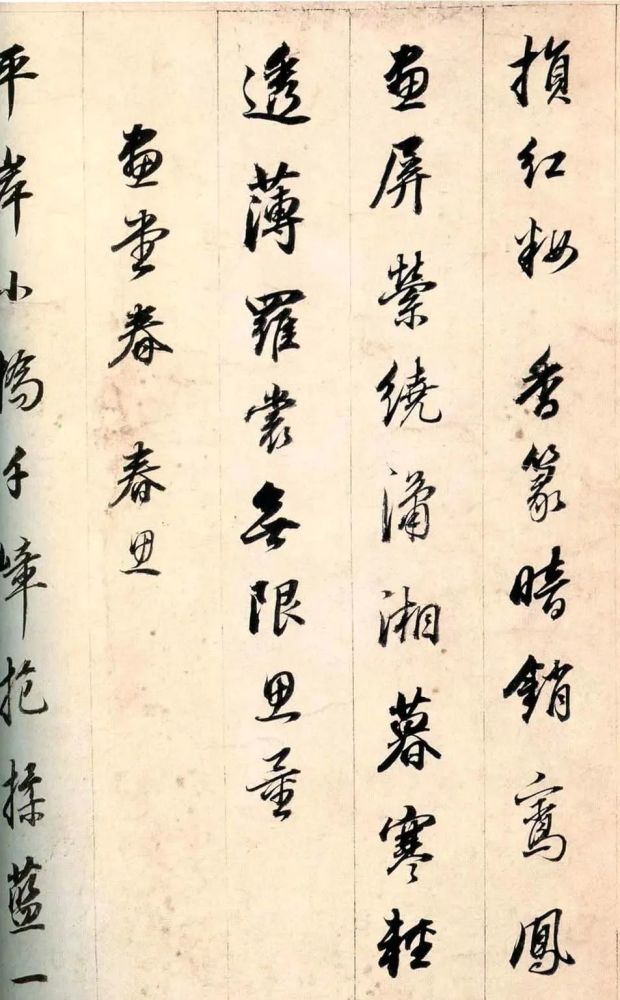 損紅粧 香篆暗銷鸞鳳
畫屏縈繞瀟湘暮寒輕
透薄羅裳無限思量
畫堂春 春思
平岸小橋千嶂抱揉藍一